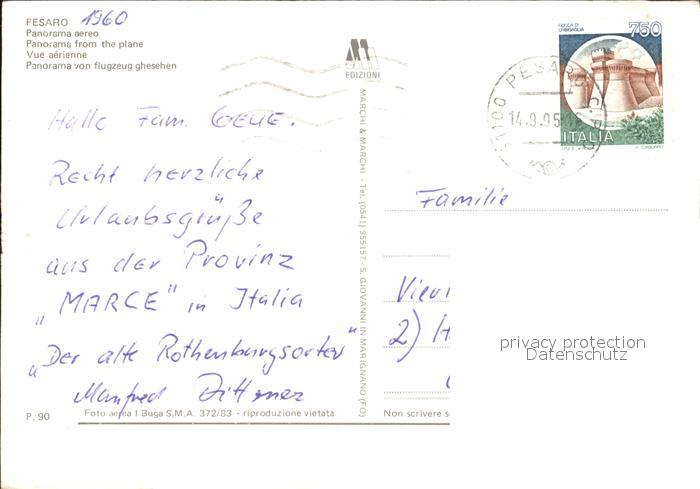 PESARO 1960
Panorama aereo
Panorama from the plane
Vue aérienne
Panorama von flugzeug ghesehen
EDIZIONI
ROCCA DI URBISAGLIA
750
ITALIA
61100 PESARO
14.9.95
Hallo Fam. GEUE.
Recht herzliche
Urlaubsgrüße
aus der Provinz
„MARCE" in Italia
„Der alte Rothenburgsorter"
Manfred Dittmer
MARCHI & MARCHI - Tel. (0541) 955157 - S. GIOVANNI IN MARIGNANO (FO)
Familie
2) H
privacy protection
Datenschutz
P. 90
Foto aerea I Buga S.M.A. 372/83 - riproduzione vietata
Non scrivere s